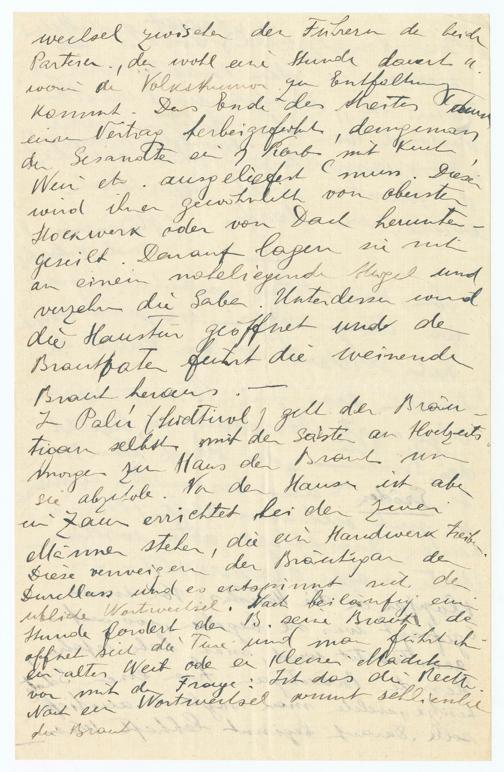 wechsel zwischen den Führern der beiden
Parteien, der wohl eine Stunde dauert u.
worin der Volkshumor zur Entfaltung
kommt. Das Ende des Streites
einen Vertrag herbeigeführt, demgemäss
den Gesandten ein Korb mit
Wein etc. ausgeliefert muss. Dieser
wird ihnen gewöhnlich vom obersten
Stockwerk oder vom Dach herunter-
geseilt. Darauf lagern sie sich
an einem naheliegenden Hügel und
verzehren die Gabe. Unterdessen wird
die Haustür geöffnet und der
Brautpaten führt die weinende
Braut heraus. —
In (Südtirol) geht der Bräu-
tigam selbst mit den Gästen am Hochzeits-
morgen zum Haus der Braut um
sie abzuholen. Vor dem Hause ist aber
ein Zaun errichtet bei dem zwei
Männer stehen, die ein Handwerk treiben.
Diese verweigern dem Bräutigam den
Durchlass und es entspinnt sich der
übliche Wortwechsel. Nach beiläufig einer
Stunde fordert der B. seine Braut, da
öffnet sich die Türe und man führt ihm
ein altes Weib oder ein kleines Mädchen
vor mit der Frage: Ist das die Rechte
Nach ein Wortwechsel kommt schliesslich
die Braut